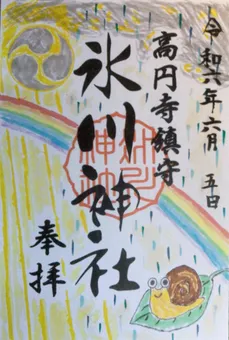 令和六年六月五日
高円寺鎮守
氷川神社
奉拝